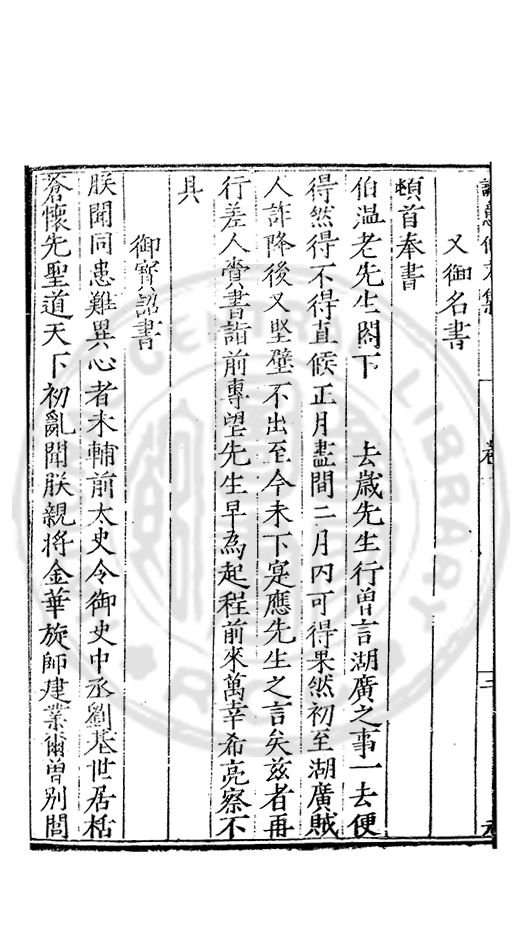 又御名書
頓首奉書
伯溫老先生閣下　去歲先生行曾言湖廣之事一去便
得然得不得直候正月盡間二月內可得果然初至湖廣賊
人詐降後又堅壁不出至今未下寔應先生之言矣茲者再
行差人賫書詣前專望先生早為起程前來萬幸希亮察不
具
御寳詔書
朕聞同患難異心者未輔前太史令御史中丞劉基世居栝
蒼懷先聖道天下初亂聞朕親將金華旋師建業爾曾別閭